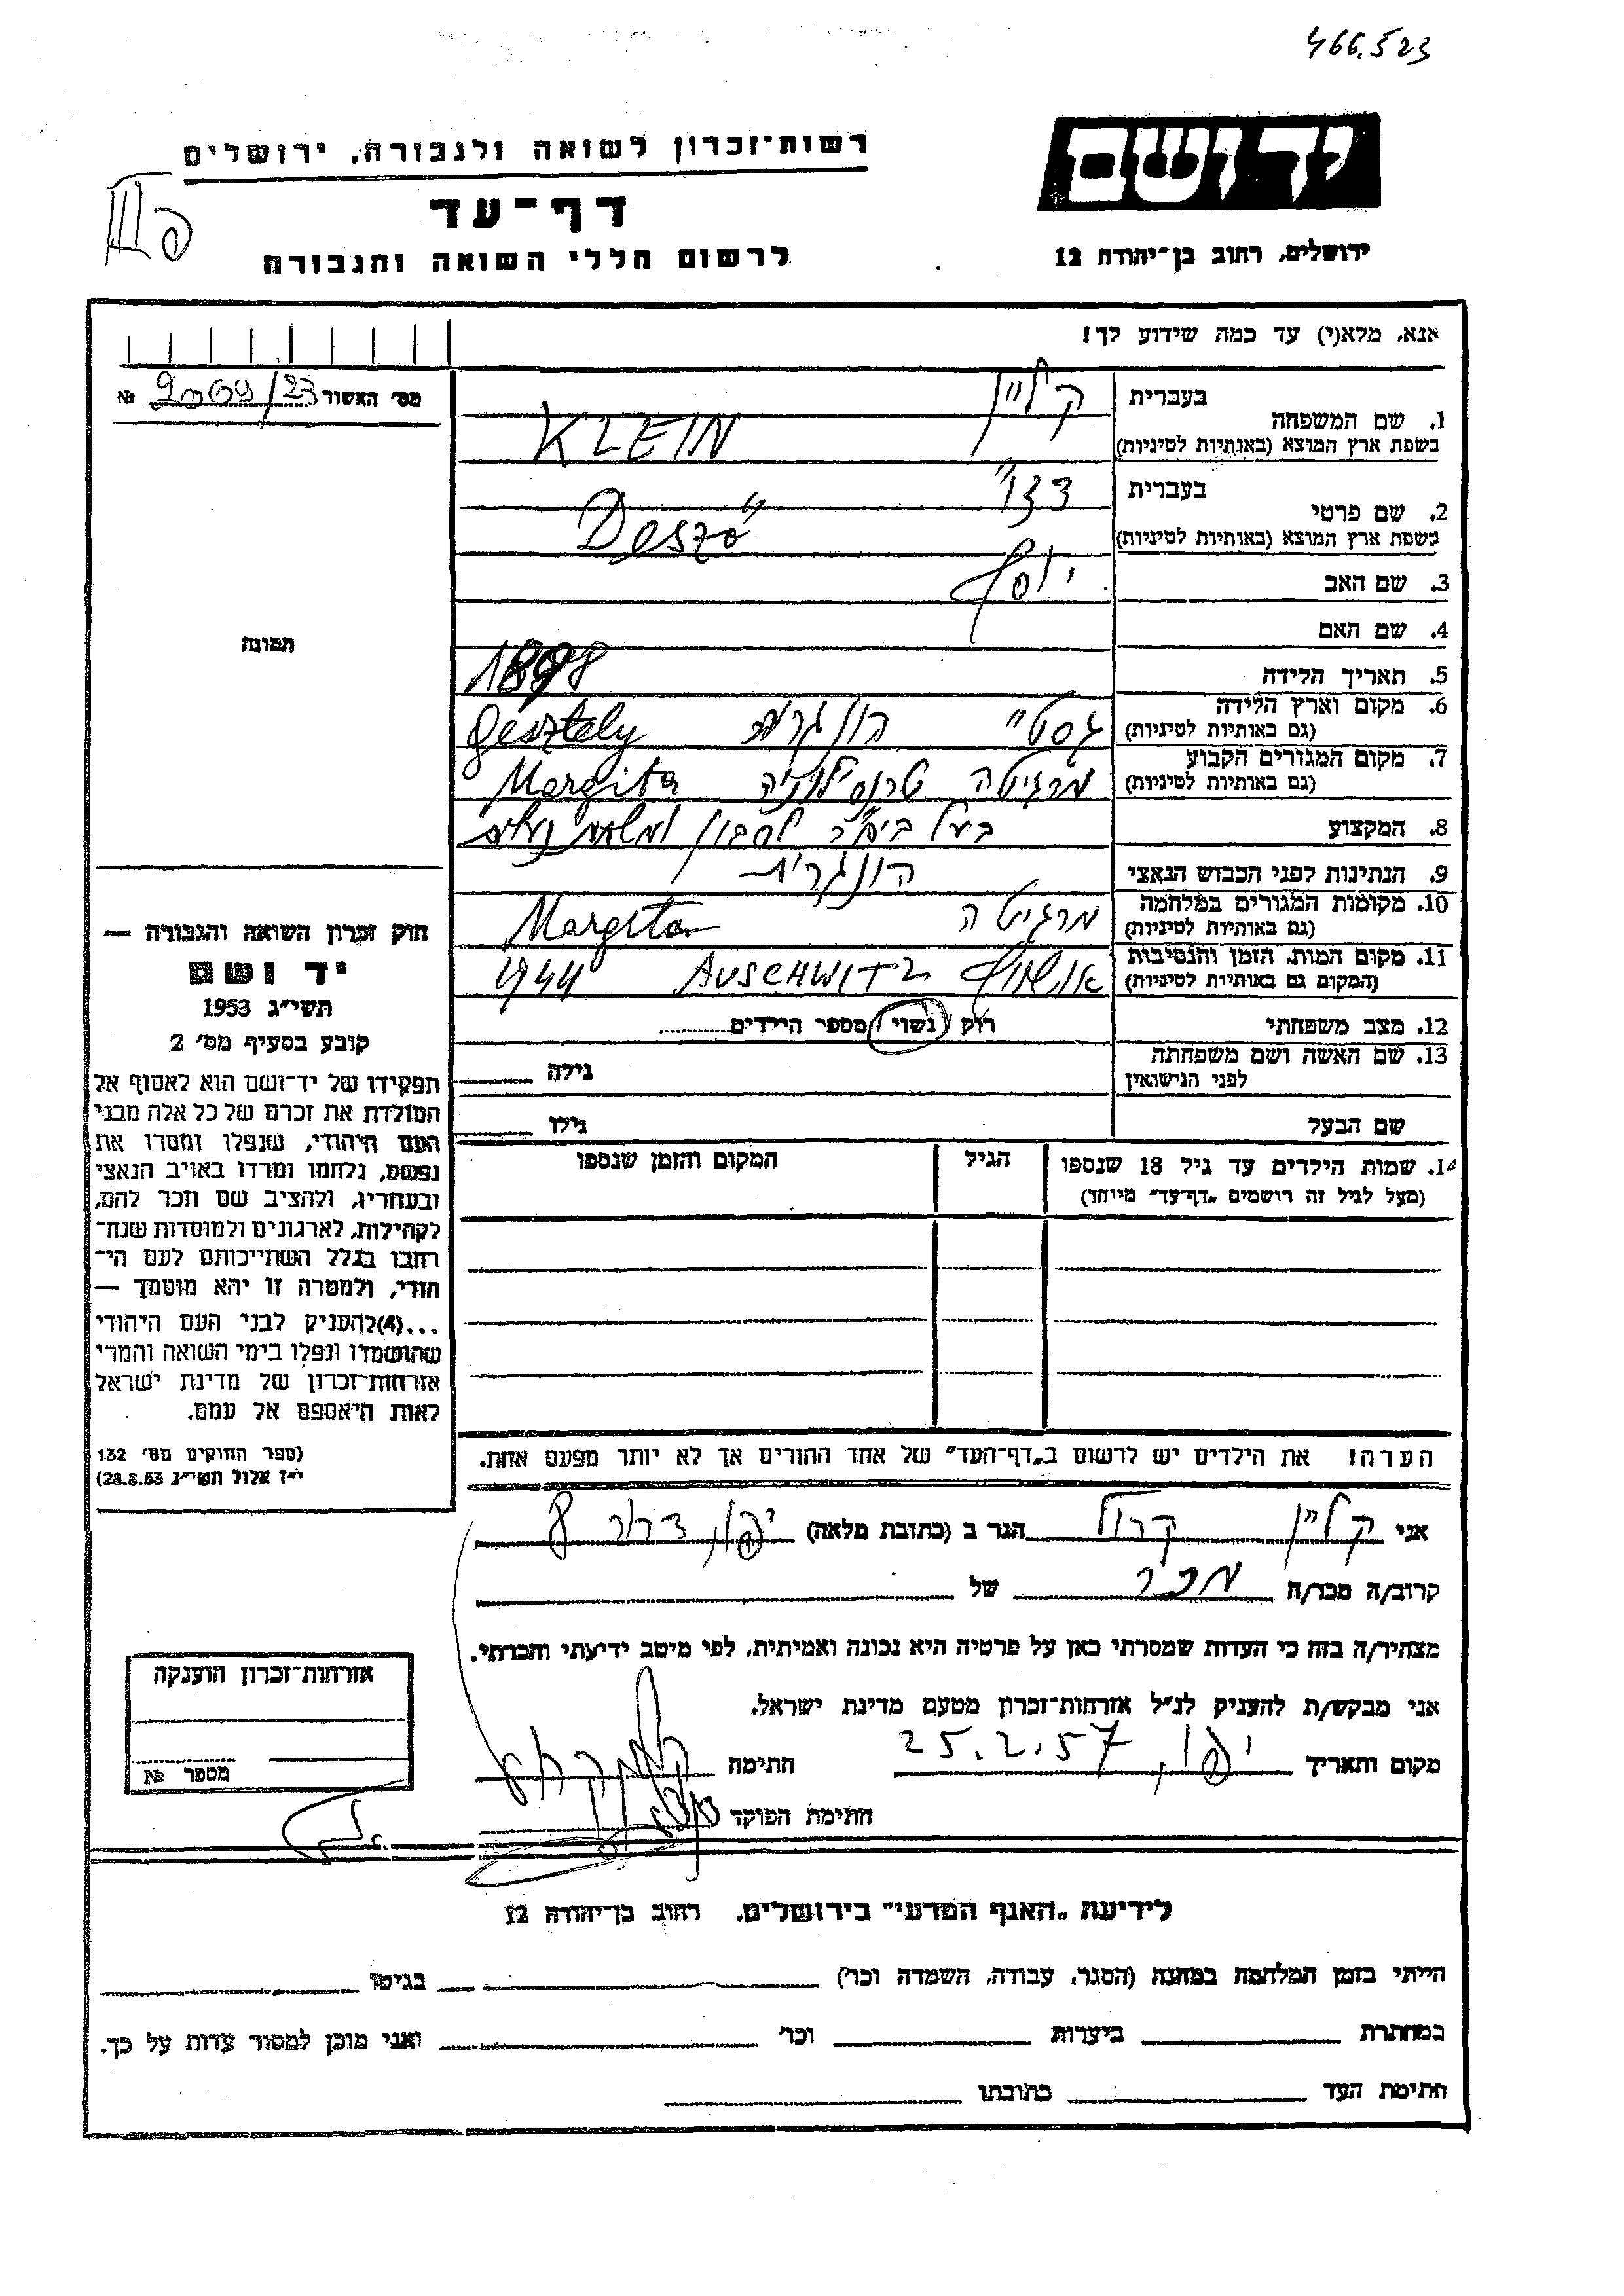 466.523
יד ושם
ירושלים, רחוב בן־יהודה 12
רשות־זכרון לשואה ולגבורה, ירושלים
דף־עד
לרשום חללי השואה והגבורה
אנא, מלא(י) עד כמה שידוע לך!
מס׳ האשור 2069/23 №
1. שם המשפחה בעברית קליין
בשפת ארץ המוצא (באותיות לטיניות) KLEIN
2. שם פרטי בעברית דזו״
בשפת ארץ המוצא (באותיות לטיניות) Deszö
3. שם האב יוסף
4. שם האם
5. תאריך הלידה 1898
6. מקום וארץ הלידה הונגריה Gesztely
(גם באותיות לטיניות)
7. מקום המגורים הקבוע מרגיטה טרנסילווניה Margita
(גם באותיות לטיניות)
8. המקצוע בעל ביח״ר לסבון
9. הנתינות לפני הכבוש הנאצי הונגרית
10. מקומות המגורים במלחמה מרגיטה Margita
(גם באותיות לטיניות)
11. מקום המות, הזמן והנסיבות אושויץ AUSCHWITZ 1944
(המקום גם באותיות לטיניות)
12. מצב משפחתי רוק / נשוי / מספר הילדים
13. שם האשה ושם משפחתה גילה
לפני הנישואין
שם הבעל גילו
14. שמות הילדים עד גיל 18 שנספו הגיל המקום והזמן שנספו
(מעל לגיל זה רושמים „דף־עד״ מיוחד)
הערה! את הילדים יש לרשום ב„דף־העד״ של אחד ההורים אך לא יותר מפעם אחת.
תמונה
חוק זכרון השואה והגבורה —
יד ושם
תשי״ג 1953
קובע בסעיף מס׳ 2
תפקידו של יד־ושם הוא לאסוף אל
המולדת את זכרם של כל אלה מבני
העם היהודי, שנפלו ומסרו את
נפשם, נלחמו ומרדו באויב הנאצי
ובעוזריו, ולהציב שם וזכר להם,
לקהילות, לארגונים ולמוסדות שנח־
רבו בגלל השתייכותם לעם הי־
הודי, ולמטרה זו יהא מוסמך —
...(4)להעניק לבני העם היהודי
שהושמדו ונפלו בימי השואה והמרי
אזרחות־זכרון של מדינת ישראל
לאות היאספם אל עמם.
(ספר החוקים מס׳ 132
י״ז אלול תשי״ג 28.8.53)
אני קליין קרול הגר ב (כתובת מלאה) יפו, דרור 8
קרוב/ה מכר/ה מכר של
מצהיר/ה בזה כי העדות שמסרתי כאן על פרטיה היא נכונה ואמיתית, לפי מיטב ידיעתי והכרתי.
אני מבקש/ת להעניק לנ״ל אזרחות־זכרון מטעם מדינת ישראל.
מקום ותאריך יפו, 25.2.57 חתימה
חתימת הפוקד
אזרחות־זכרון הוענקה
מספר №
לידיעת „האגף המדעי״ בירושלים. רחוב בן־יהודה 12
הייתי בזמן המלחמה במחנה (הסגר, עבודה, השמדה וכר׳) בגיטו
במחתרת ביערות וכר׳ ואני מוכן למסור עדות על כך.
חתימת העד כתובתו